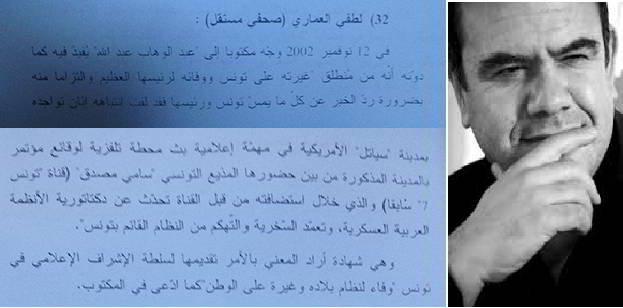 32) لطفي العماري (صحفي مستقل) :
في 12 نوفمبر 2002 وجّه مكتوبا إلى "عبد الوهاب عبد الله" يُفيدُ فيه كما
دوّنه أنّه من مُنطلق "غيرته على تونس ووفائه لرئيسها العظيم والتزاما منه
بضرورة ردّ الخبر عن كلّ ما يمسّ تونس ورئيسها فقد لفت إنتباهه إبّان تواجده
بمدينة "سياتل" الأمريكية في مهمّة إعلامية بث محطة تلفزية لوقائع مؤتمر
بالمدينة المذكورة من بين حضورها المذيع التونسي "سامي مصدق" (قناة "تونس
7" سابقا) والذي خلال استضافته من قبل القناة تحدّث عن دكتاتورية الأنظمة
العربية العسكرية، وتعمّد السّخرية والتّهكم من النظام القائم بتونس".
وهي شهادة أراد المعني بالأمر تقديمها لسلطة الإشراف الإعلامي في
تونس "وفاء لنظام بلاده وغيرة على الوطن" كما ادّعى في المكتوب.